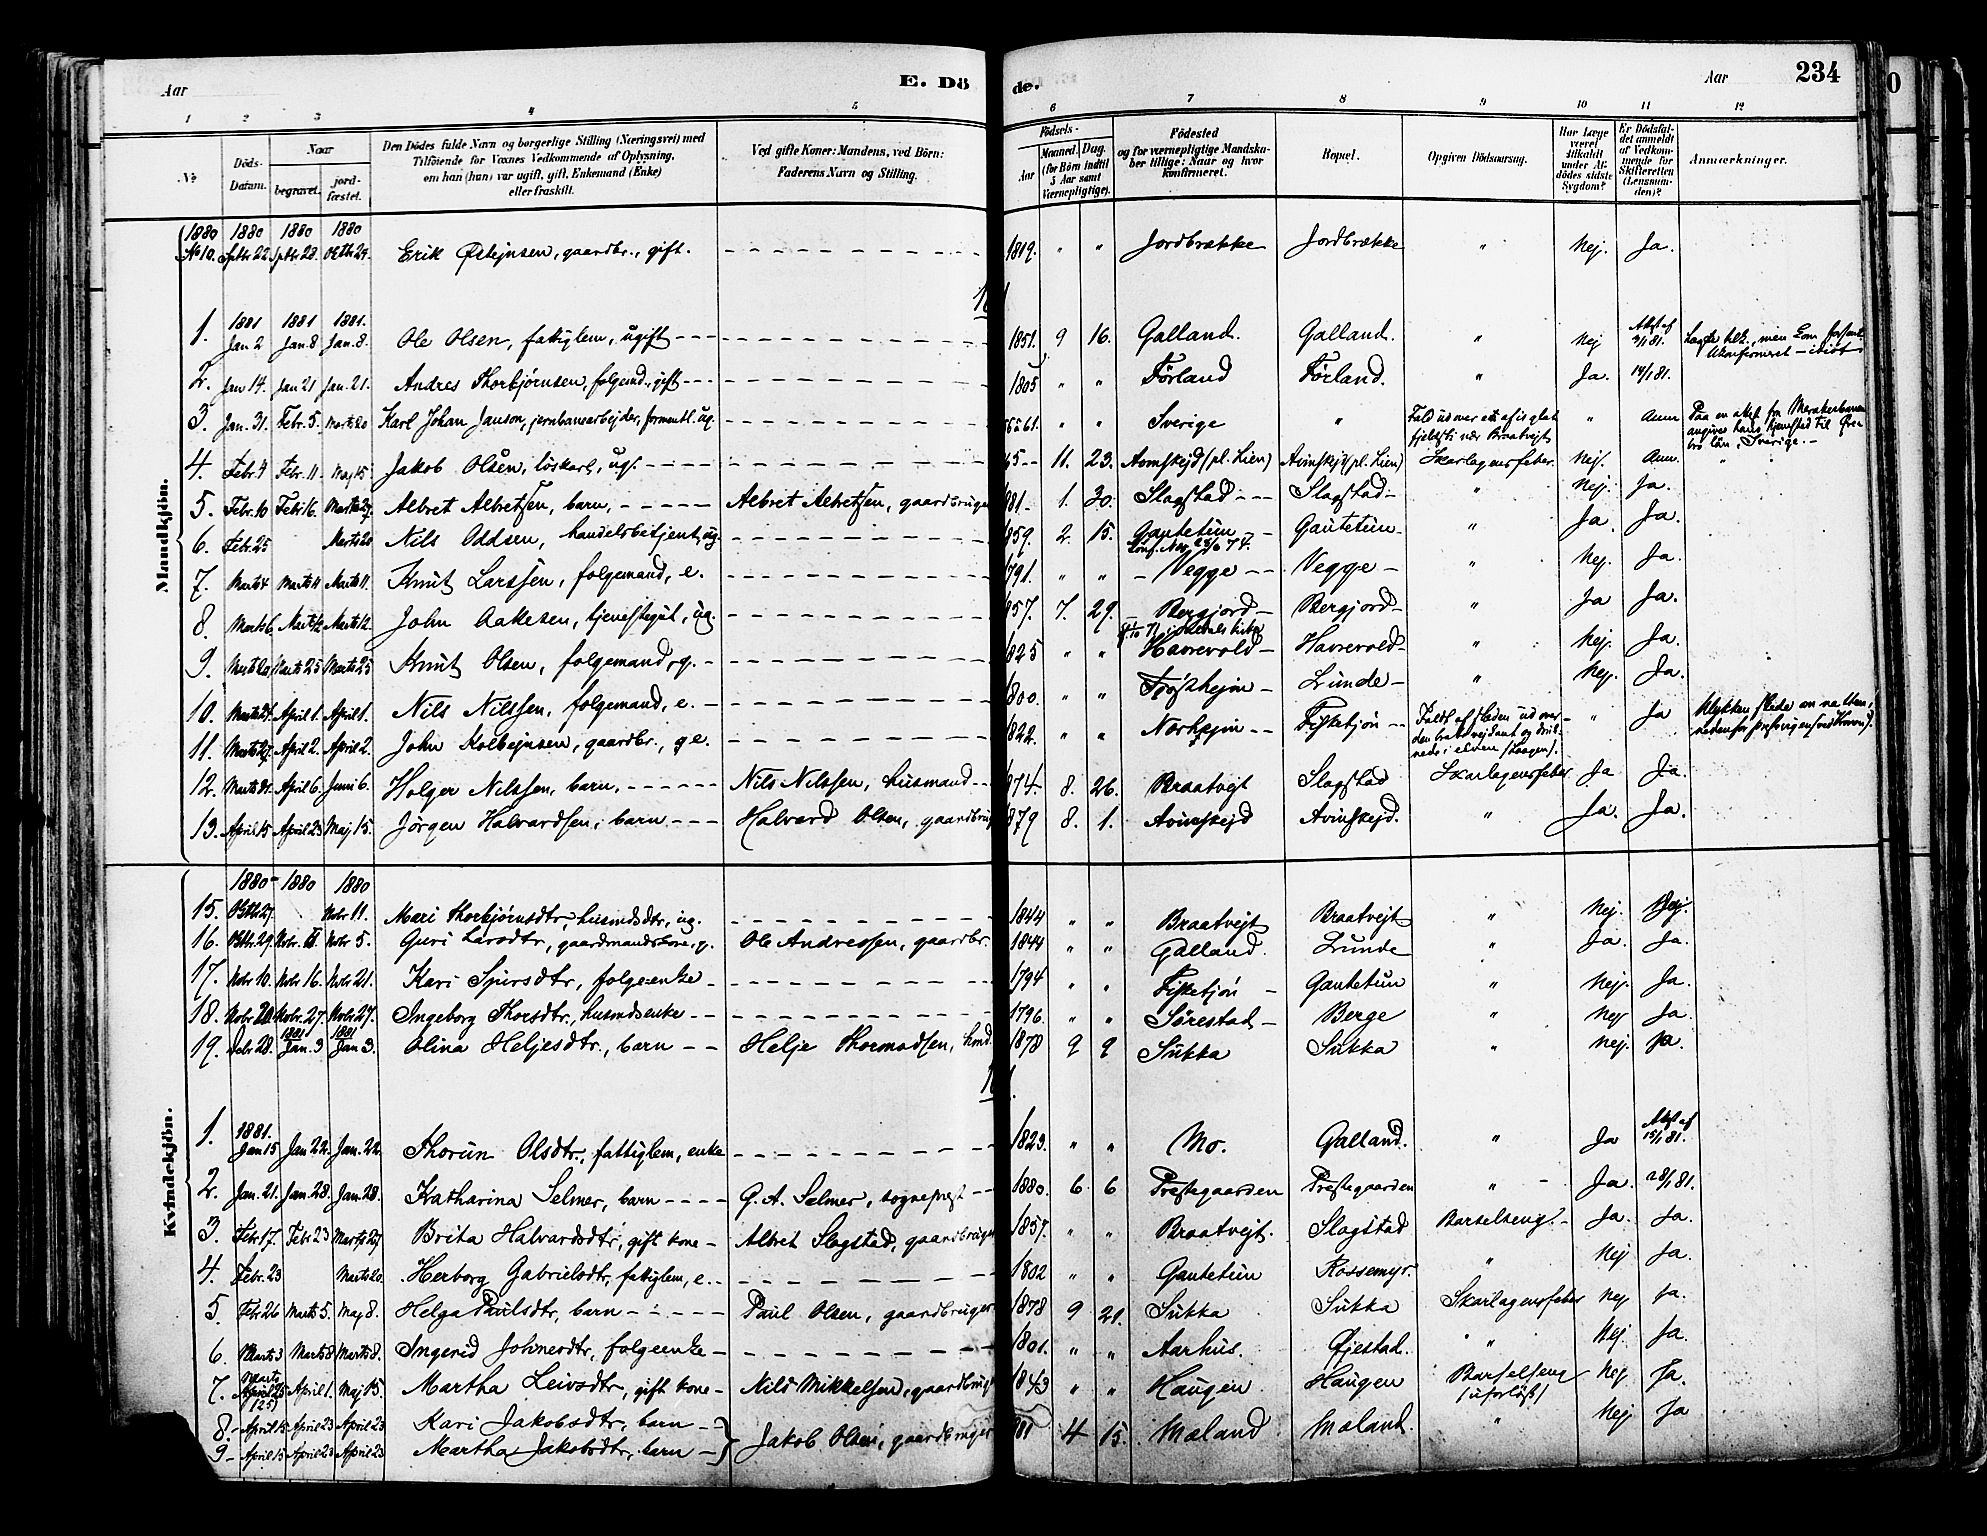 Aar E. Döde. Aar 234
1 2 3 4 5 6 7 8 9 10 11 12
No Döds-Datum. Naar begravet. jordfæstet. Den Dödes fulde Navn og borgerlige Stilling (Næringsvei) med Tilföiende for Voxnes Vedkommende af Oplysning, om han (hun) var ugift, gift, Enkemand (Enke) eller fraskilt. Ved gifte Koner: Mandens, ved Börn: Faderens Navn og Stilling. Födsels- Aar Maaned. Dag. (for Börn indtil 5 Aar samt Værnepligtige). Födested og for værnepligtige Mandskaber tillige: Naar og hvor konfirmeret. Bopæl. Opgiven Dödsaarsag. Har Læge været tilkaldt under Afdödes sidste Sygdom? Er Dödsfaldet anmeldt af Vedkommende for Skifteretten (Lensmanden)? Anmærkninger.
Mandkjön.
1880 1880 1880 1880
No 10. Sptbr 22. Sptbr 28. Oktbr 24. Erik Østejnsen, gaardbr., gift. 1819. " " Jordbrække Jordbrække " Nej. Ja.
1881 1881 1881.
1. Jan 2 Jan. 8 Jan. 8. Ole Olsen, fattiglem, ugift 1851. 9 16. Galland. Galland. " Nej
2. Jan 14. Jan 21 Jan. 21. Andres Thorbjørnsen, folgemd., gift 1805 " " Førland Førland. " Ja. 14/1 81.
3. Jan. 31. Febr. 5. Marts 20 Karl Johan Janson, jernbanearbejder, formentl. ug. " " Sverige " Fald ud over et af is glat fjeldsti nær Braatvejt " Anm Paa en fra Merakerbanen angives hans hjemsted til Ørebro län, Sverige.
4. Febr. 4 Febr. 11 Maj 15 Jakob Olsen, löskarl, ug. 65 11. 23. Avinskejd (pl. Lien) Avinskejd (pl. Lien) Skarlagensfeber. Nej. Anm. "
5. Febr. 10 Febr 16. Marts 27 Albret Albretsen, barn, Albret Albretsen, gaardbruger 881 1. 30. Slagstad Slagstad " Nej. Ja.
6. Febr. 25 Marts 20 Nils Oddsen, handelsbetjent, ug. 859. 2. 15. Gautetun Gautetun " Ja. Ja.
7. Marts 4 Marts 11 Marts 11. Knut Larssen, folgemand, e. 791. " " Vegge Vegge " Nej. Ja.
8. Marts 6 Marts 12 Marts 12. John Aakesen, tjenestegut, ug. 857. 7. 29. Bergjord Bergjord " Ja Ja.
9. Marts 20 Marts 25 Marts 25. Knut Olsen, folgemand, g. 1825 " " Havrevold Havrevold " Nej. Ja.
10. Marts 24. April 1. April 1. Nils Nilssen, folgemand, e. 1800. " " Lunde " Nej. Ja.
11. Marts 27 April 2. April 2. John Kolbejnsen, gaardbr., ge. 1822. " " Fisketjøn Faldt af slæden ud over den bratte vejkant og druknede i elven (Laagen). " Ja
12. Marts 31. April 6 Juni 6. Holger Nilssen, barn, Nils Nilssen, husmand 874. 8. 26. Braatvejt Slagstad Skarlagensfeber Ja Ja.
13. April 15 April 23 Maj 15. Jørgen Halvardsen, barn Halvard Olsen, gaardbrug 879 8. 1. Avinskejd Avinskejd. " Ja. Ja.
Kvindekjön.
1880 1880 1880
15. Oktb 27 Nobr 11. Mari Thorbjørnsdtr, husmdsdtr, ug. 1844 " " Braatvejt Braatvejt " Nej. Nej.
16. Oktbr. 29. Nobr. Nobr 5. Guri Larsdtr, gaardmandskone, g. Ole Andressen, gaardbr. 1844 " " Galland. Lunde " Ja. Ja.
17. Nobr 10. Nobr 16. Nobr 21. Kari Spirsdtr, folgeenke 1794 " " Fisketjón Gautetun " Nej. Ja.
18. Nobr 20 Nobr. 27 Nobr 27. Ingeborg Thorsdtr., husmdsenke 1796. " " Sørestad Berge " Nej Ja.
1881 1881
19. Debr 28. Jan. 3 Jan 3. Olina Heljesdtr., barn Helje Thormodsen, 1878 9 9 Sukka Sukka " Nej. Ja.
1881.
1. Jan 15 Jan 22. Jan. 22. Thorun Olsdtr., fattiglem, enke 1823. " " Mo. Galland. " Ja 15/1 81.
2. Jan. 21. Jan. 28. Jan. 28. Katharina Selmer, barn G. A. Selmer, sogneprest 1880. 6 6 Prestegaarden Prestegaarden " Ja. 28/1 81.
3. Febr 17. Febr 23 Marts 27 Brita Halvardsdtr, gift kone Albret Slagstad, gaardbruger 1857. " " Braatvejt. Slagstad Barselseng. Ja. Ja.
4. Febr. 23 Marts 20. Herborg Gabrielsdtr, fattiglem, e. 1802 " " Gautetun Rossemyr. " Nej Ja.
5. Febr 26 Marts 5. Maj 8. Helga Paulsdtr, barn Paul Olsen, gaardbruger 1878 9 21. Sukka Sukka Skarlagensfeber Nej Ja.
6. Marts 3 Marts 8 Marts 8. Ingerid Johnersdtr, folgeenke 1801. " " Aarhus. Øjestad. " Nej. Ja.
7. Marts 25 (25) April 1. Maj 15. Martha Leivsdtr, gift kone Nils Mikkelsen, gaardbrug 1843 " " Haugen Haugen Barselseng (uforløst) Nej Ja.
8. April 15 April 23 April 23 Kari Jakobsdtr, barn
9 April 15 April 23 April 23 Martha Jakobsdtr, barn } Jakob Olsen, gaardbruger 881 4 15. Maland Maland. " Nej Ja